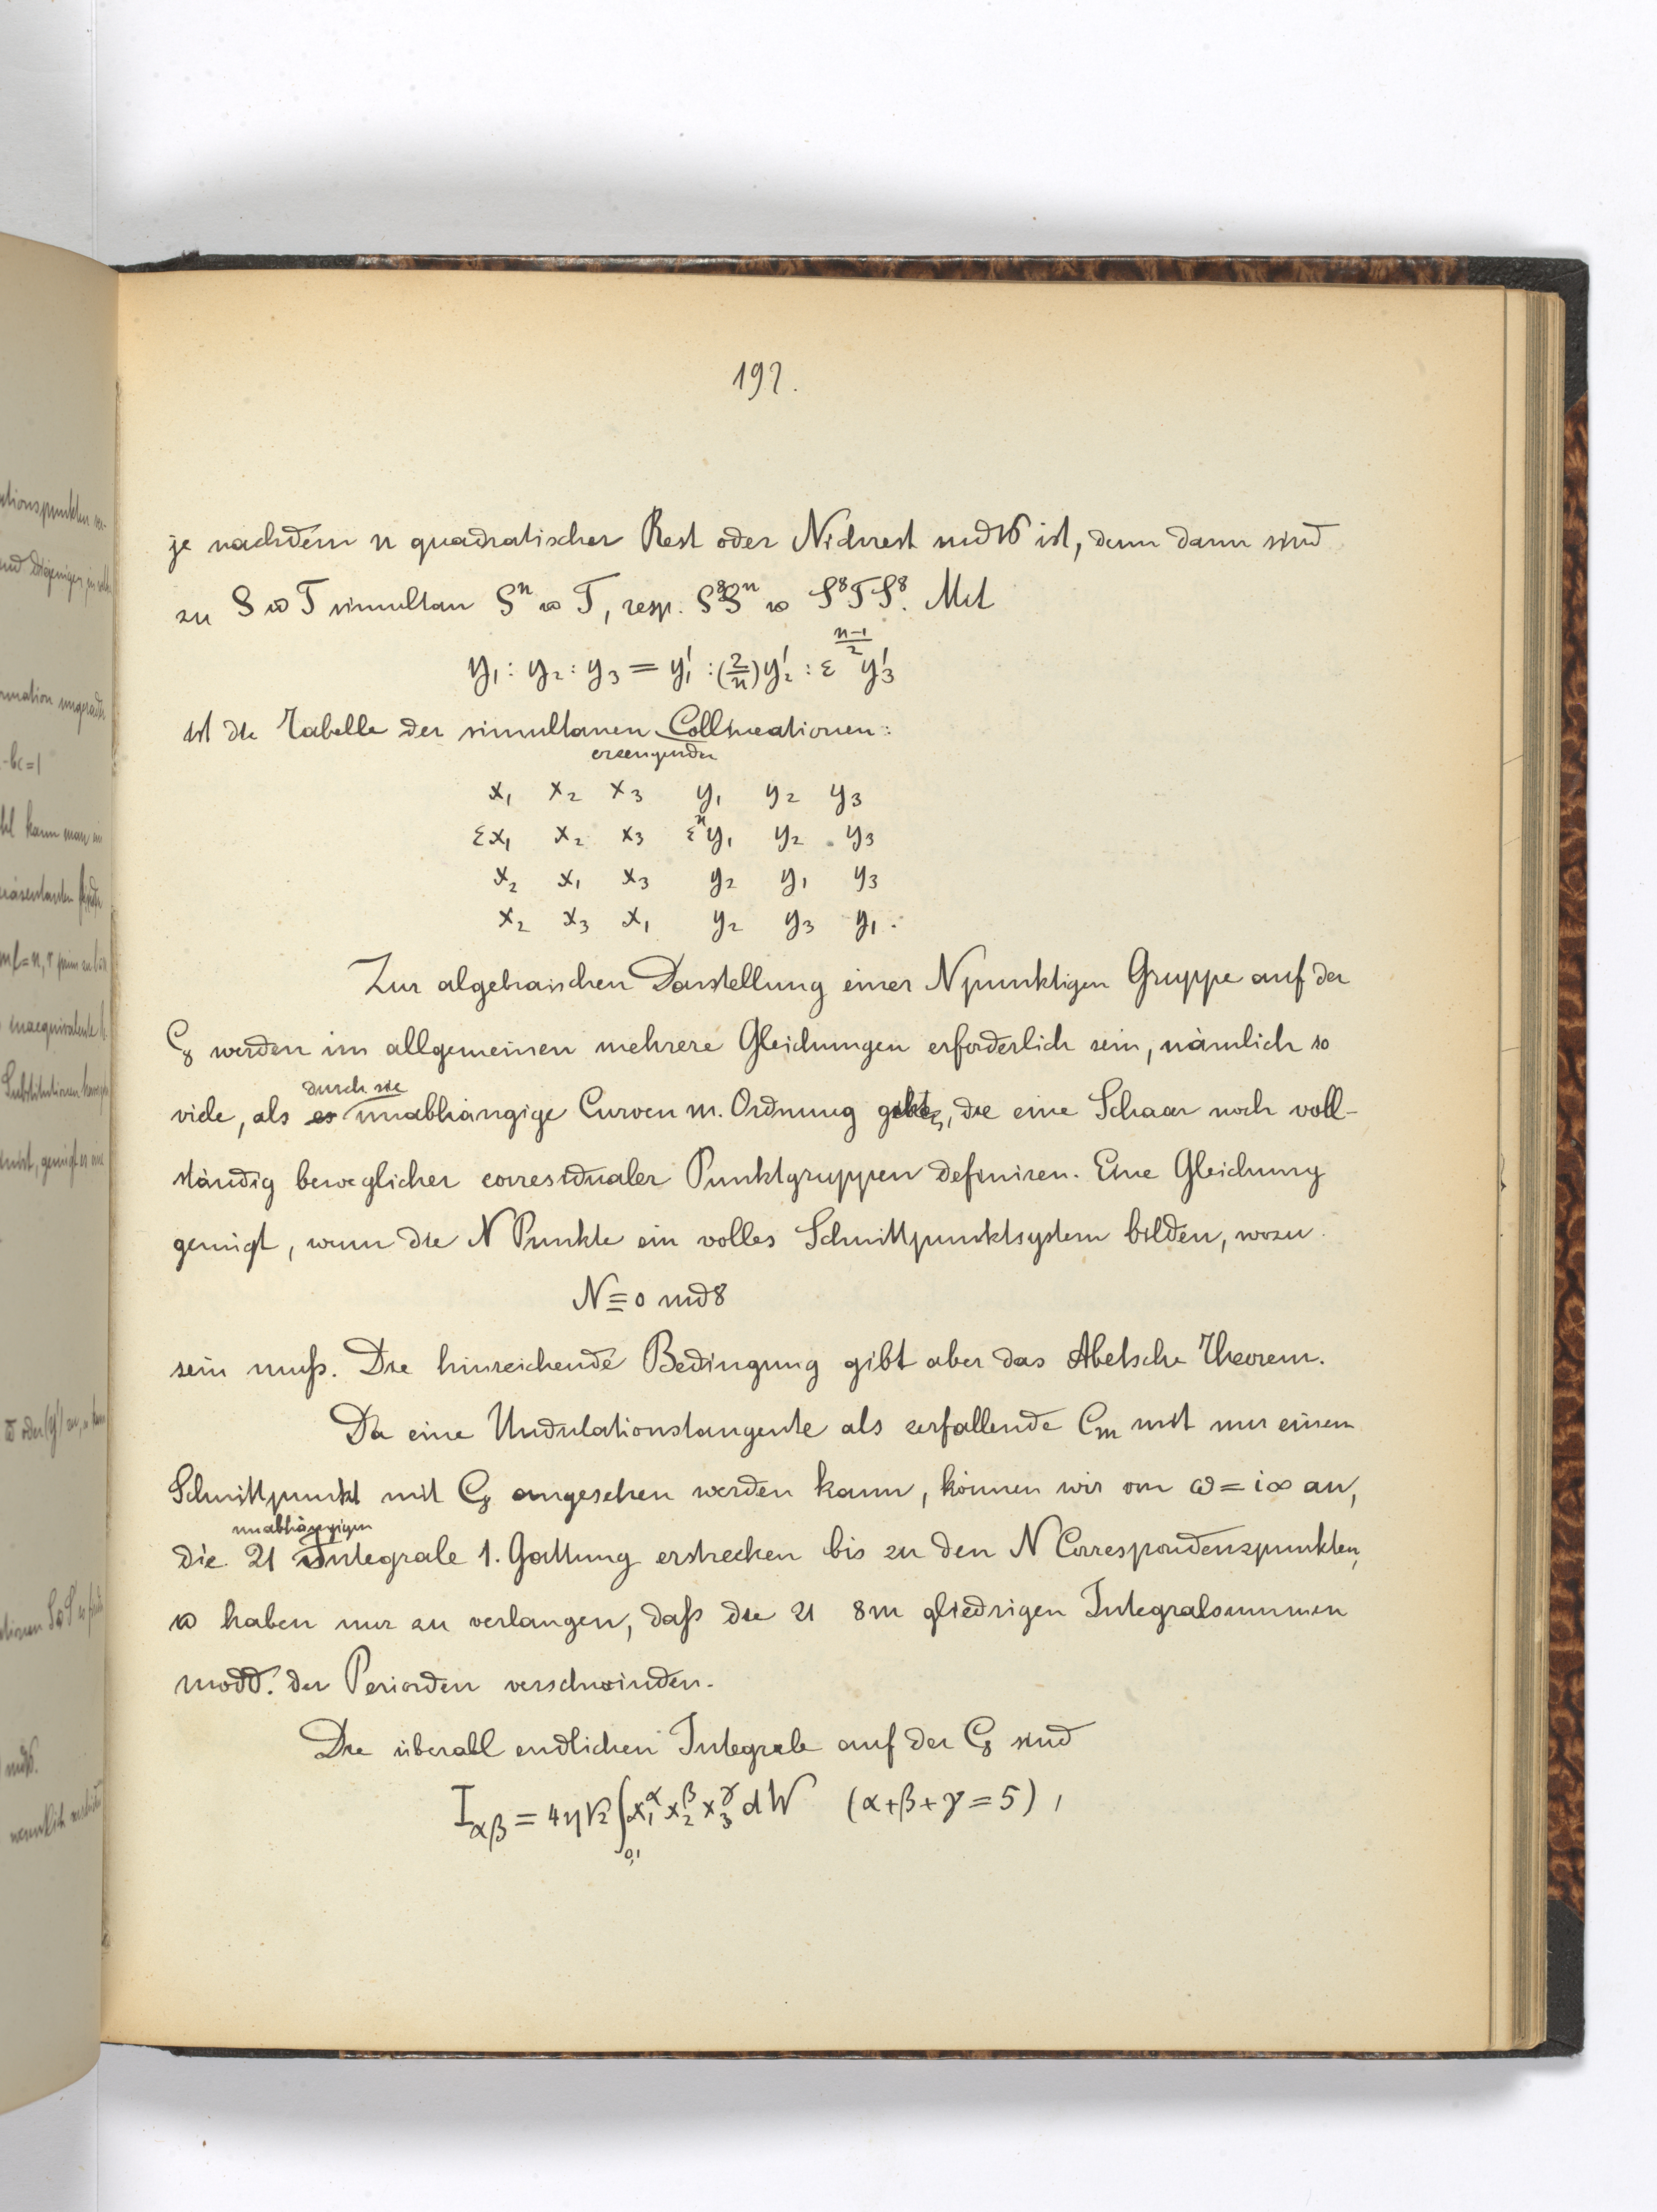 197.
je nachdem n quadratischer Rest oder Nichtrest md 16 ist, denn dann sind
zu S u T simultan Sⁿ u T, resp. S⁸Sⁿ u S⁸TS⁸. Mit
y₁ : y₂ : y₃ = y₁' : (2/n) y₂' : ε^((n-1)/2) y₃'
ist die Tabelle der simultanen Collineationen:
erzeugenden
x₁ x₂ x₃ y₁ y₂ y₃
εx₁ x₂ x₃ εⁿy₁ y₂ y₃
x₂ x₁ x₃ y₂ y₁ y₃
x₂ x₃ x₁ y₂ y₃ y₁.
Zur algebraischen Darstellung einer N punktigen Gruppe auf der
C₈ werden im allgemeinen mehrere Gleichungen erforderlich sein, nämlich so
durch sie
viele, als es unabhängige Curven m. Ordnung gibt, die eine Schaar noch voll-
ständig beweglicher corresidualer Punktgruppen definiren. Eine Gleichung
genügt, wenn die N Punkte ein volles Schnittpunktsystem bilden, wozu
N ≡ 0 md 8
sein muß. Die hinreichende Bedingung gibt aber das Abelsche Theorem.
Da eine Undulationstangente als zerfallende Cₘ mit nur einem
Schnittpunkt mit C₈ angesehen werden kann, können wir von ω = i∞ an,
unabhängigen
die 21 Integrale 1. Gattung erstrecken bis zu den N Correspondenzpunkten,
u haben nur zu verlangen, daß die 21 8m gliedrigen Integralsummen
modd. der Perioden verschwinden.
Die überall endlichen Integrale auf der C₈ sind
I_αβ = 4η√2 ∫₀,₁ x₁^α x₂^β x₃^γ dW (α+β+γ=5),